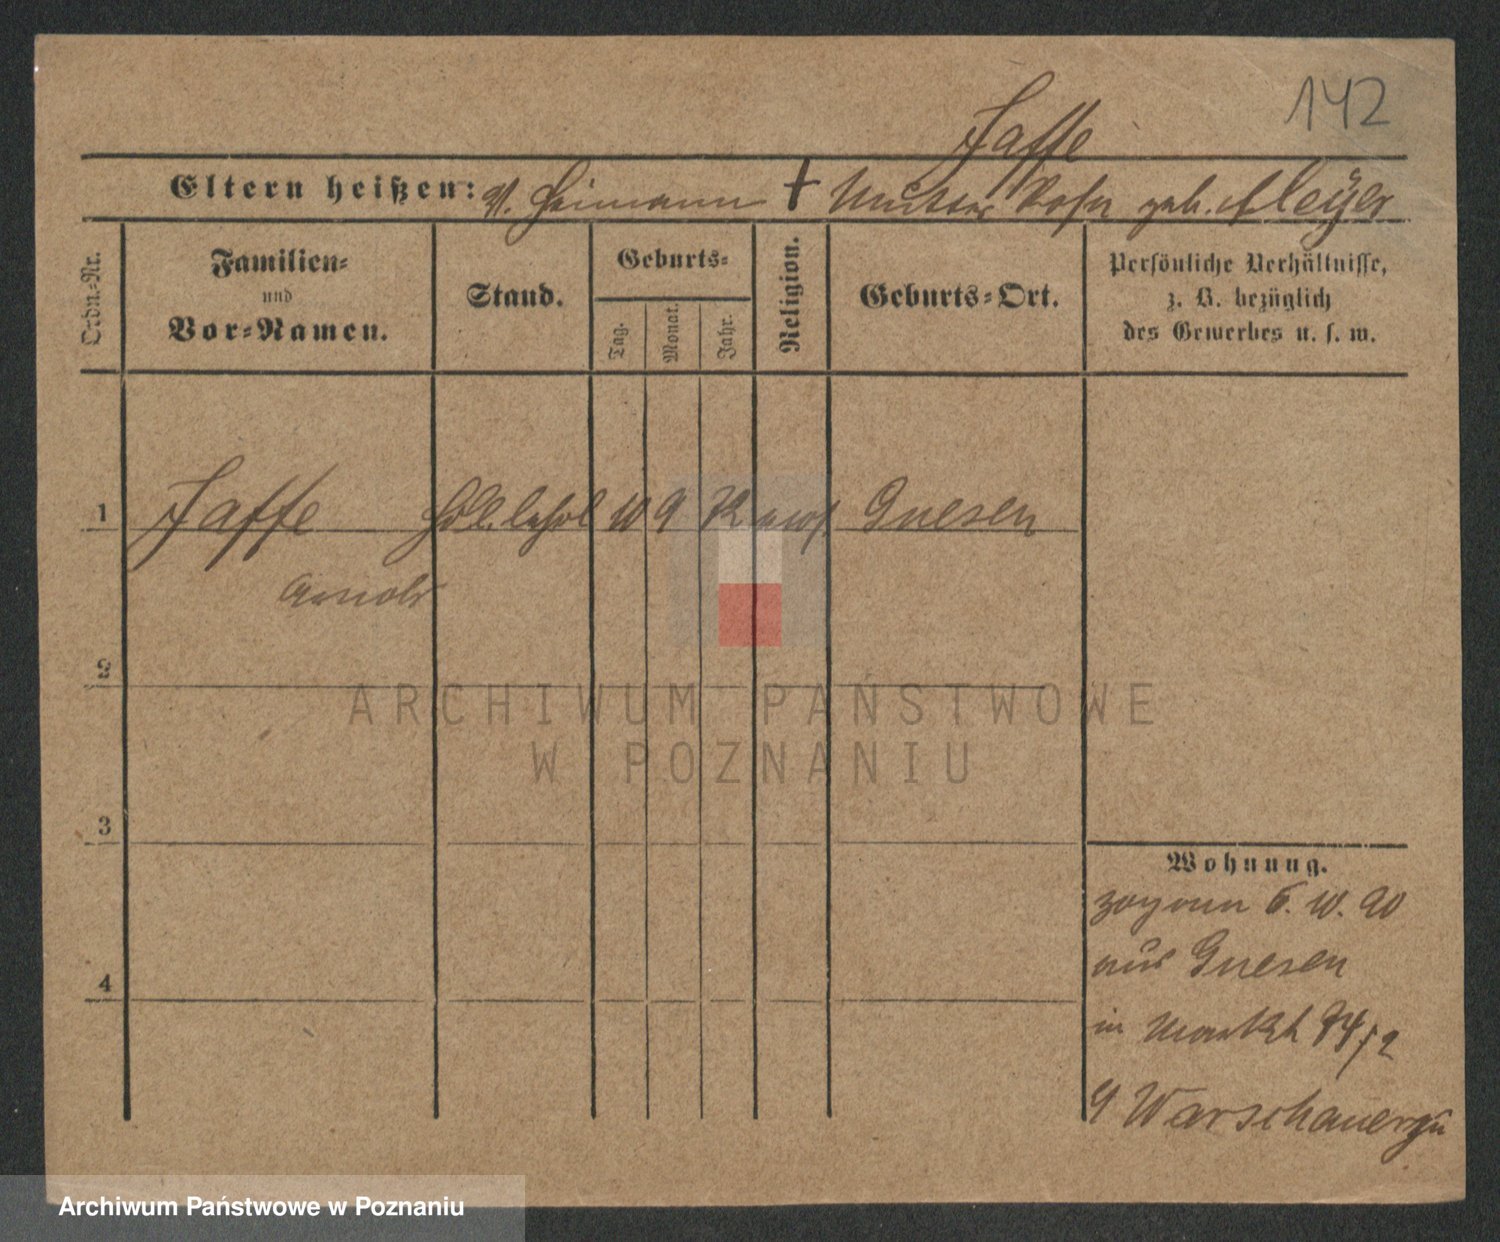 142
Jaffe
Eltern heißen: V. Heimann + Mutter Rosa geb. Meyer
Ordn.-Nr.
Familien-
und
Vor-Namen.
Stand.
Geburts-
Tag.
Monat.
Jahr.
Religion.
Geburts-Ort.
Persönliche Verhältnisse,
z. B. bezüglich
des Gewerbes u. s. w.
1 Jaffe 10 9 72 mos. Gnesen
Arnold
2
3
4
Wohnung.
6. 10. 90
aus Gnesen
in Markt 74/2
Warschauer
ARCHIWUM PAŃSTWOWE
W POZNANIU
Archiwum Państwowe w Poznaniu